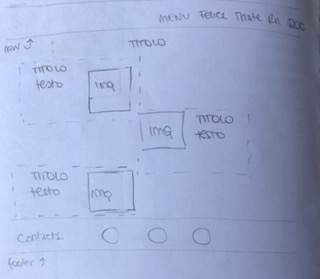 MENU FELICE TRISTE
nav
TITOLO
TITOLO
testo
img
img
TITOLO
testo
TITOLO
testo
img
Contacts.
footer